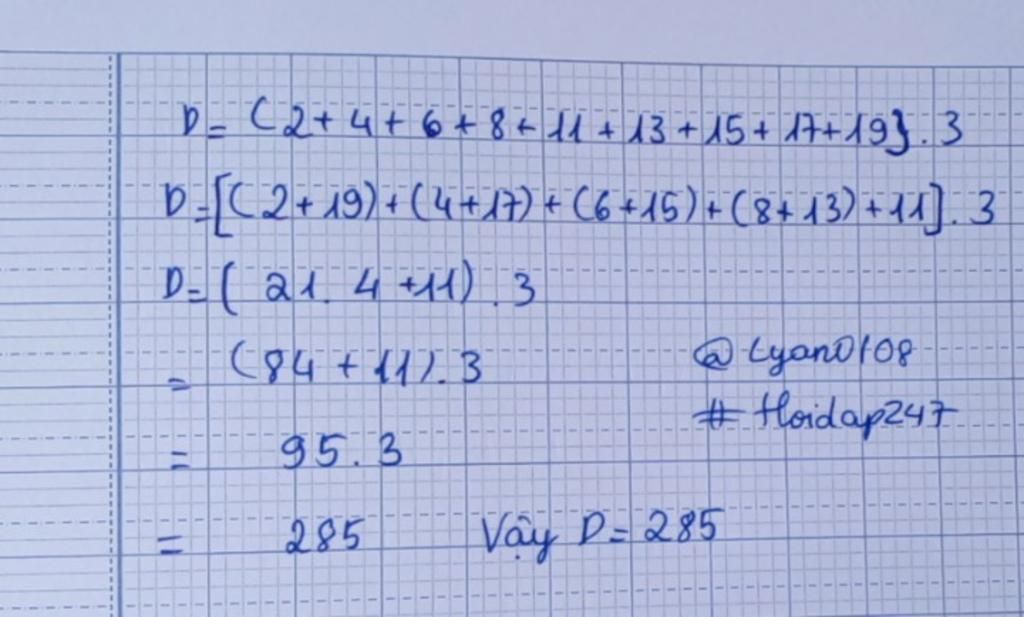 D = (2+4+6+8+11+13+15+17+19}.3
D=[(2+19)+(4+17)+(6+15)+(8+13)+11].3
D=( 21. 4 +11).3
= (84+11).3
@Lyan0108
# Hoidap247
= 95.3
= 285 Vậy D= 285